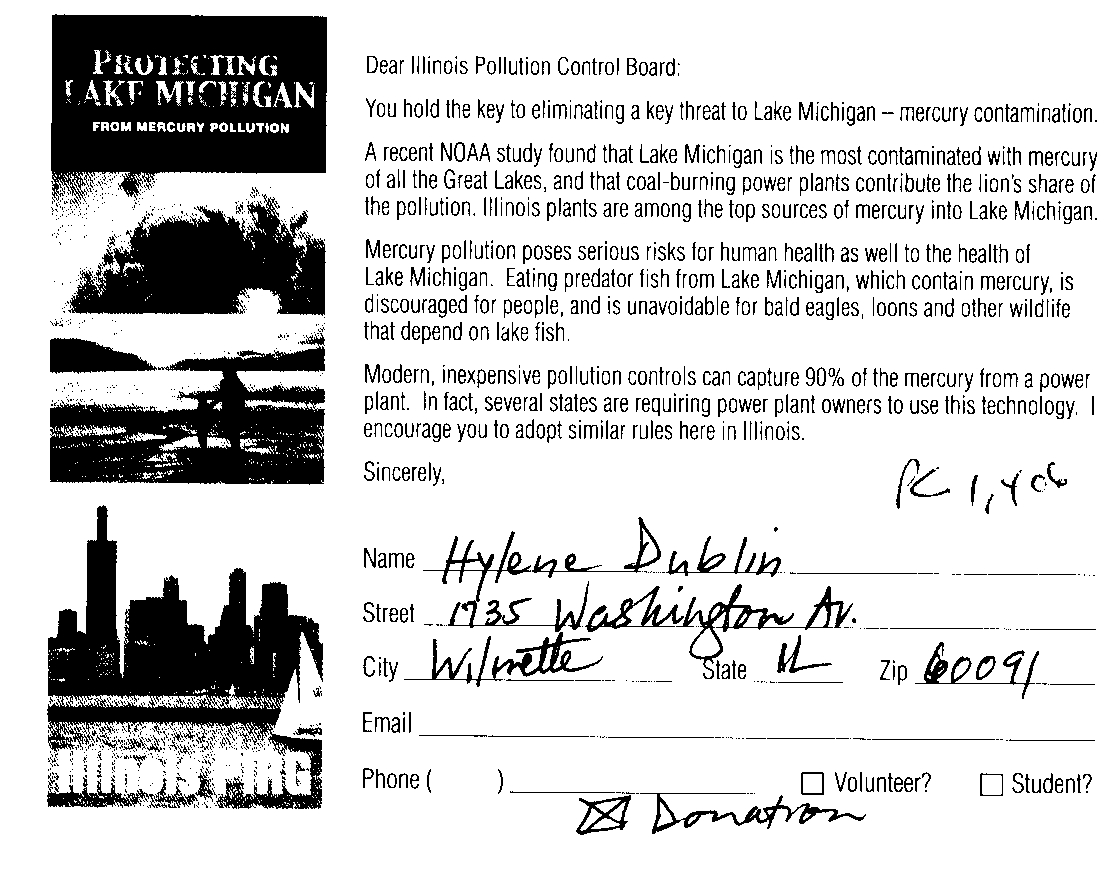 PROTECTING
LAKE MICHIGAN
FROM MERCURY POLLUTION
Illinois PIRG
Dear Illinois Pollution Control Board:
You hold the key to eliminating a key threat to Lake Michigan – mercury contamination.
A recent NOAA study found that Lake Michigan is the most contaminated with mercury
of all the Great Lakes, and that coal-burning power plants contribute the lion's share of
the pollution. Illinois plants are among the top sources of mercury into Lake Michigan.
Mercury pollution poses serious risks for human health as well to the health of
Lake Michigan. Eating predator fish from Lake Michigan, which contain mercury, is
discouraged for people, and is unavoidable for bald eagles, loons and other wildlife
that depend on lake fish.
Modern, inexpensive pollution controls can capture 90% of the mercury from a power
plant. In fact, several states are requiring power plant owners to use this technology. I
encourage you to adopt similar rules here in Illinois.
Sincerely,
PC 1,406
Name Hylene Dublin
Street 1735 Washington Av.
City Wilmette State IL Zip 60091
Email
Phone ( ) ☐ Volunteer? ☐ Student?
☒ Donation